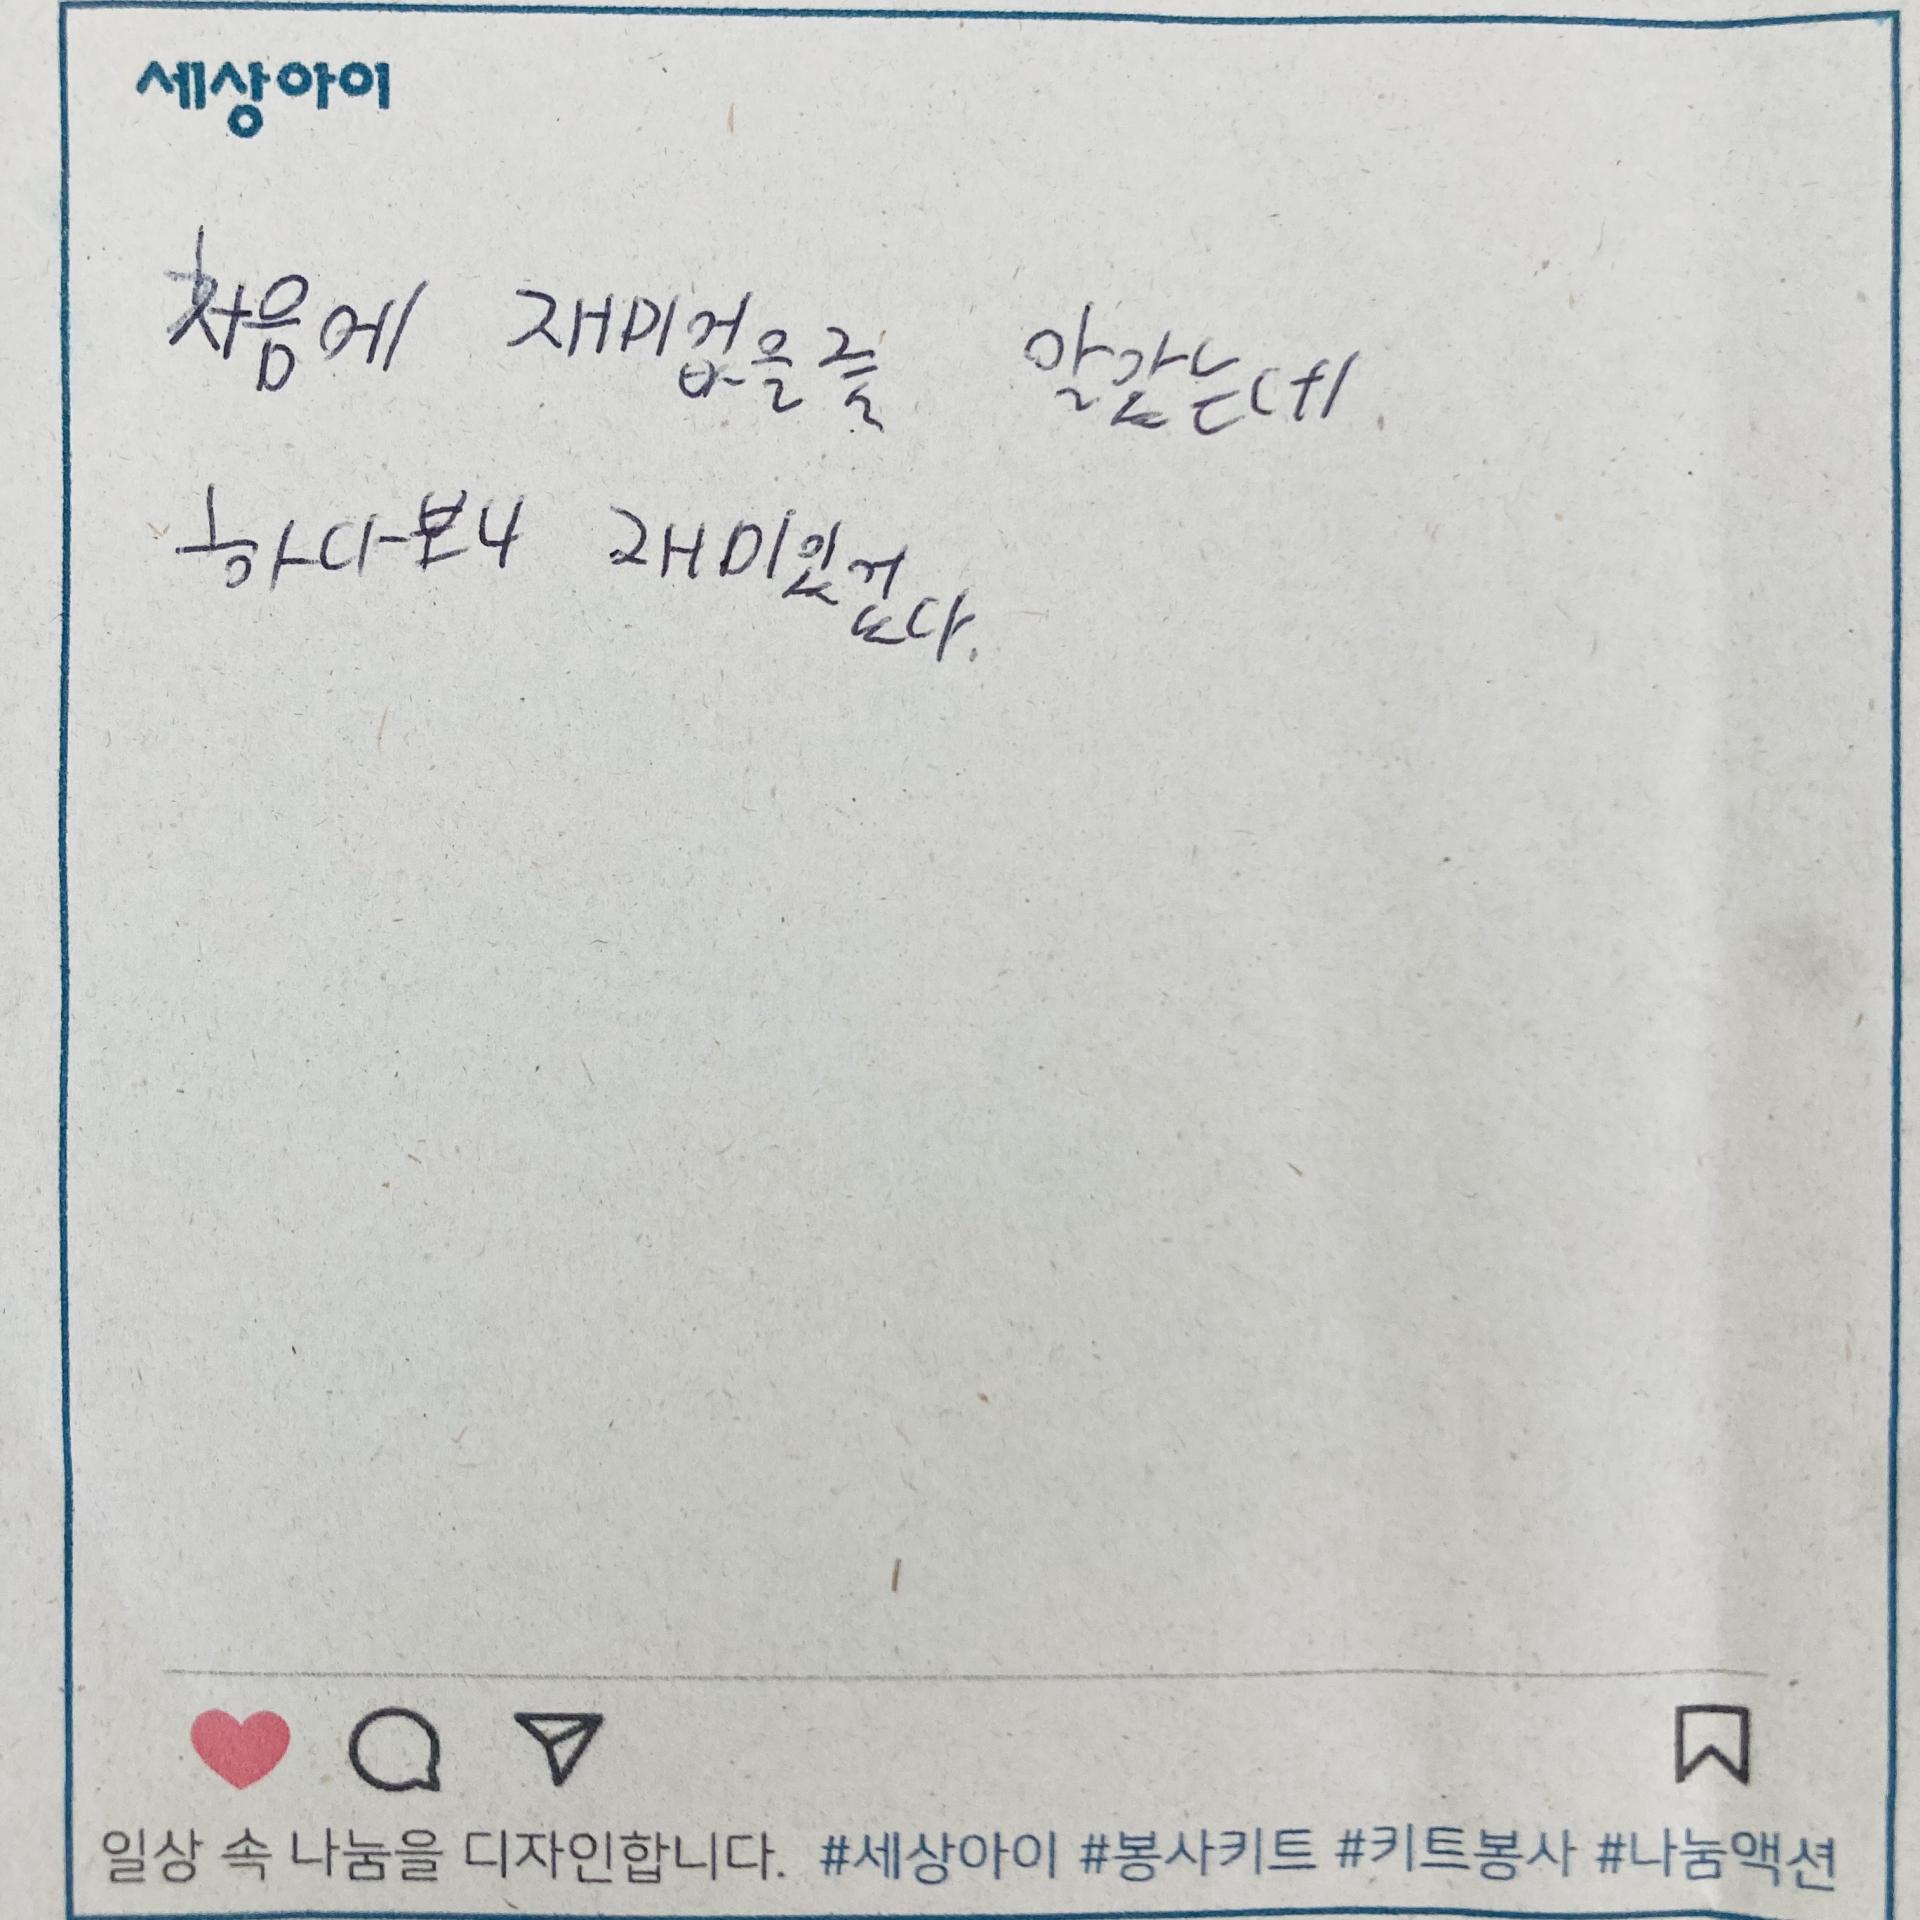 세상아이
처음에 재미없을줄 알았는데
하다보니 재미있었다.
일상 속 나눔을 디자인합니다. #세상아이 #봉사키트 #키트봉사 #나눔액션